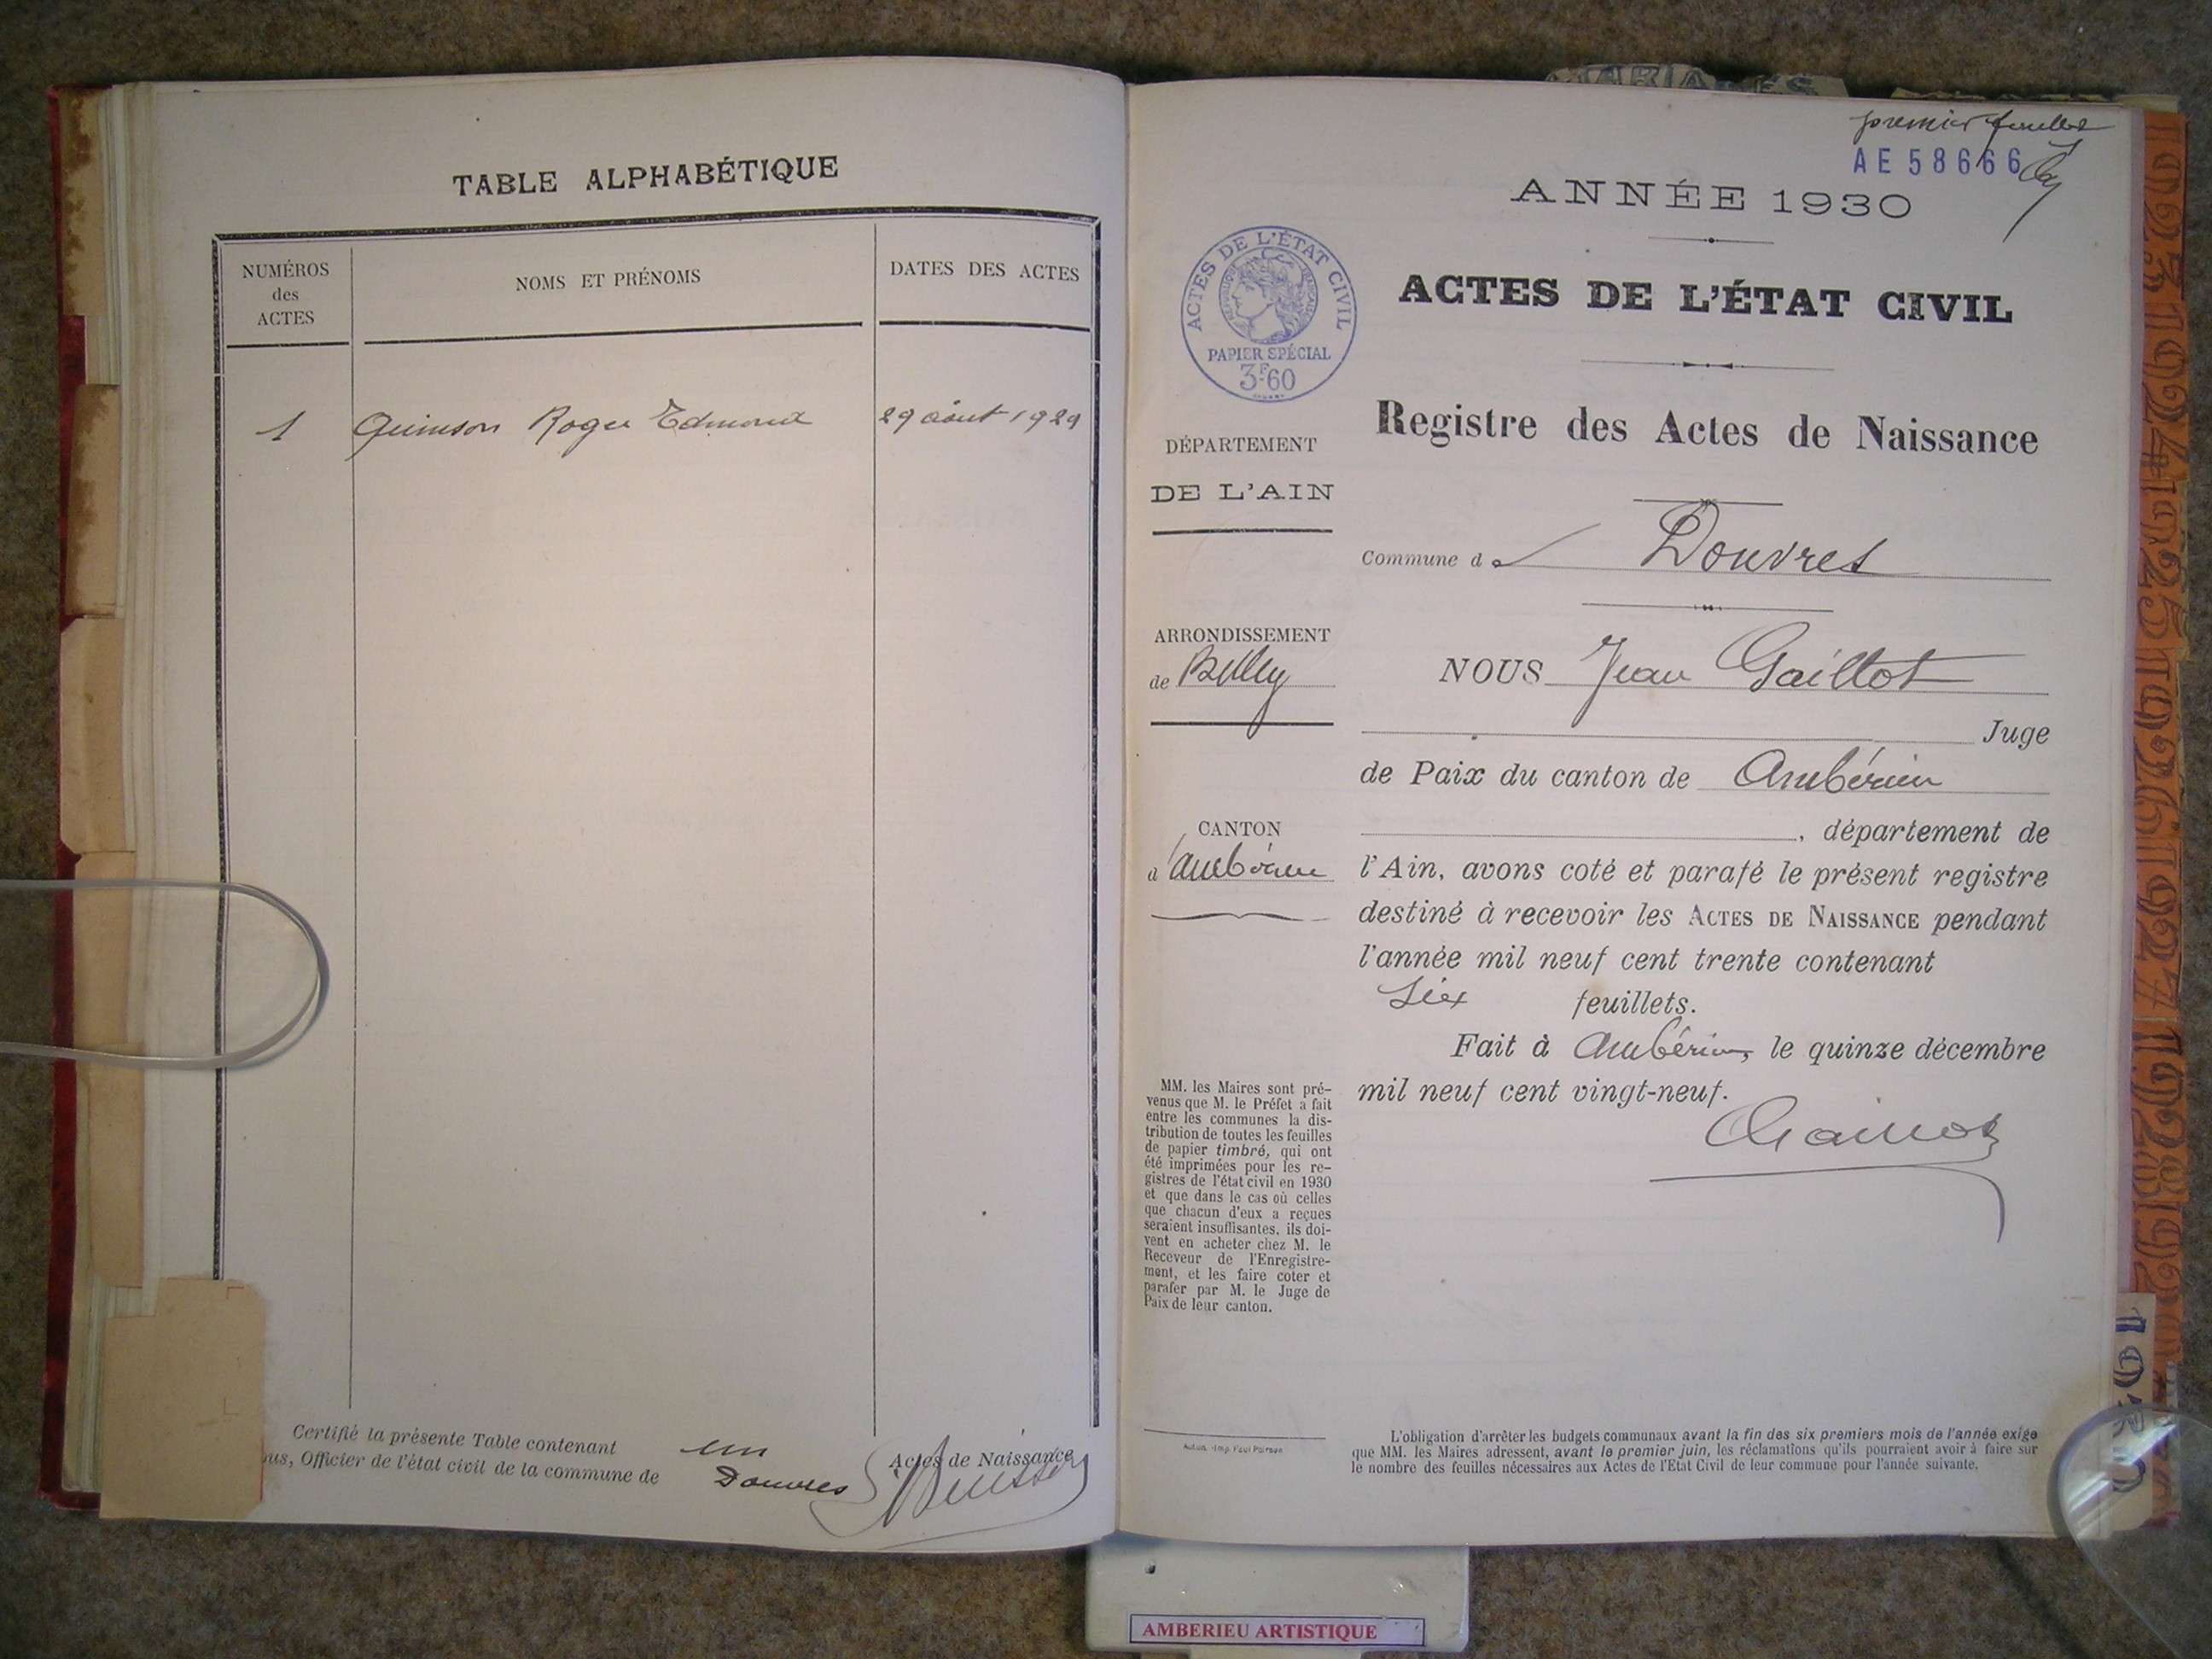 TABLE ALPHABÉTIQUE
NUMÉROS
des
ACTES
NOMS ET PRÉNOMS
DATES DES ACTES
1 Quinson Roger Edmond 29 août 1929
Certifié la présente Table contenant un Actes de Naissance
Officier de l'état civil de la commune de Douvres
premier feuillet
AE 58666
ANNÉE 1930
ACTES DE L'ÉTAT CIVIL
PAPIER SPÉCIAL
3F60
ACTES DE L'ÉTAT CIVIL
Registre des Actes de Naissance
DÉPARTEMENT
DE L'AIN
Commune d Douvres
ARRONDISSEMENT
de Belley
NOUS Jean Gaillot
Juge
de Paix du canton de Ambérieu
CANTON
d'Ambérieu
, département de
l'Ain, avons coté et parafé le présent registre
destiné à recevoir les ACTES DE NAISSANCE pendant
l'année mil neuf cent trente contenant
six feuillets.
Fait à Ambérieu, le quinze décembre
mil neuf cent vingt-neuf.
MM. les Maires sont pré-
venus que M. le Préfet a fait
entre les communes la dis-
tribution de toutes les feuilles
de papier timbré, qui ont
été imprimées pour les re-
gistres de l'état civil en 1930
et que dans le cas où celles
que chacun d'eux a reçues
seraient insuffisantes, ils doi-
vent en acheter chez M. le
Receveur de l'Enregistre-
ment, et les faire coter et
parafer par M. le Juge de
Paix de leur canton.
L'obligation d'arrêter les budgets communaux avant la fin des six premiers mois de l'année exige
que MM. les Maires adressent, avant le premier juin, les réclamations qu'ils pourraient avoir à faire sur
le nombre des feuilles nécessaires aux Actes de l'Etat Civil de leur commune pour l'année suivante.
AMBERIEU ARTISTIQUE